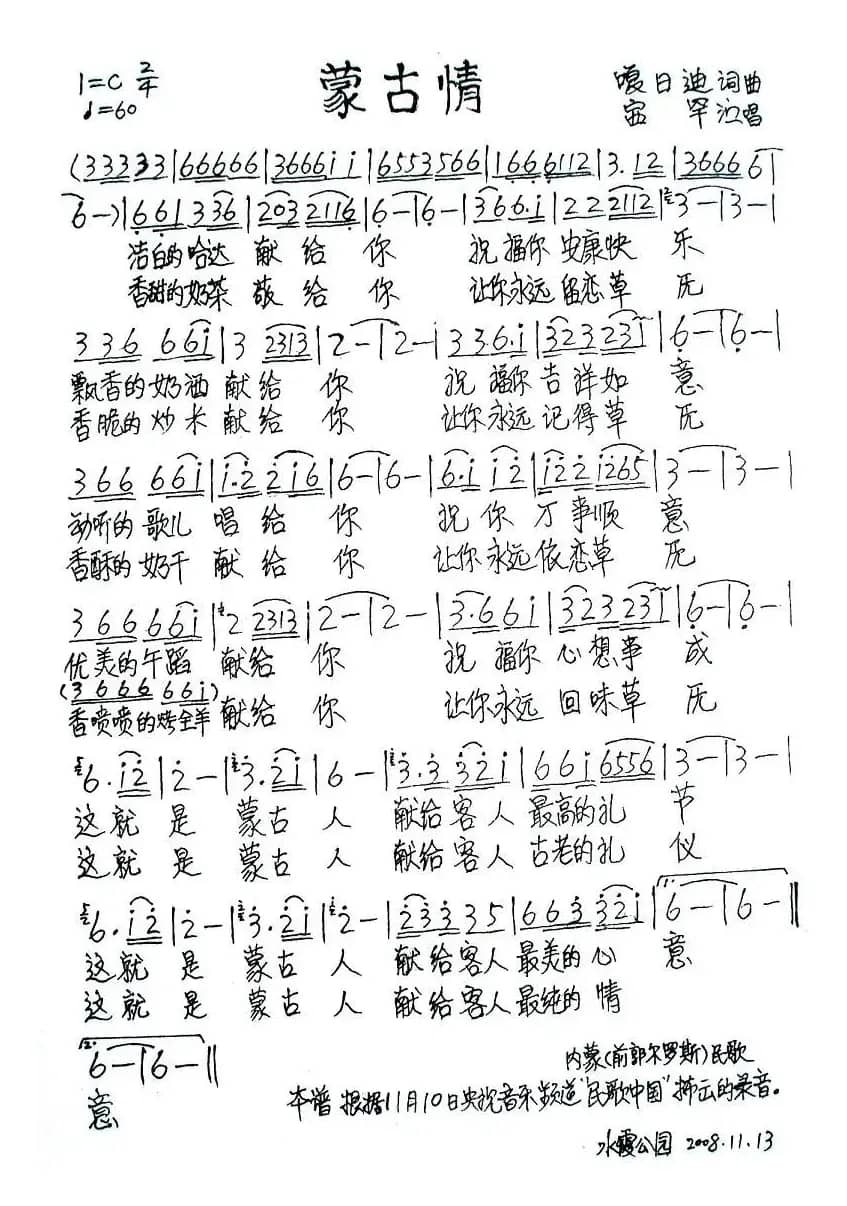 蒙古情
1=C 2/4
♩=60
嘎日迪词曲
演唱
(33333|66666|3666i i|6553566|1666112|3.12|36666|
6-)|661336|2032116|6-|6-|366.i|222112|3-|3-|
洁白的哈达 献给 你 祝福你安康快 乐
香甜的奶茶 敬给 你 让你永远留恋草 原
336 66i|3 2313|2-|2-|336.i|32323i|6-|6-|
飘香的奶酒 献给 你 祝福你吉祥如 意
香脆的炒米 献给 你 让你永远记得草 原
366 66i|i.2 2i6|6-|6-|6.i i2|i22 i265|3-|3-|
动听的歌儿 唱给 你 祝你万事顺 意
香酥的奶干 献给 你 让你永远依恋草 原
3666 66i|2 2313|2-|2-|3.66i|32323i|6-|6-|
优美的午蹈 献给 你 祝福你心想事 成
(3666 66i)
香喷喷的烤全羊 献给 你 让你永远回味草 原
6.i2|2-|3.2i|6-|3.3 32i|66i 6556|3-|3-|
这就 是 蒙古 人 献给客人 最高的礼 节
这就 是 蒙古 人 献给客人 古老的礼 仪
6.i2|2-|3.2i|2-|23335|663 32i|6-|6-‖
这就 是 蒙古 人 献给客人 最美的心 意
这就 是 蒙古 人 献给客人 最纯的 情
6-|6-‖
意
内蒙(前郭尔罗斯)民歌
本谱根据11月10日央视音乐频道"民歌中国"播出的录音。
水霞公园 2008.11.13